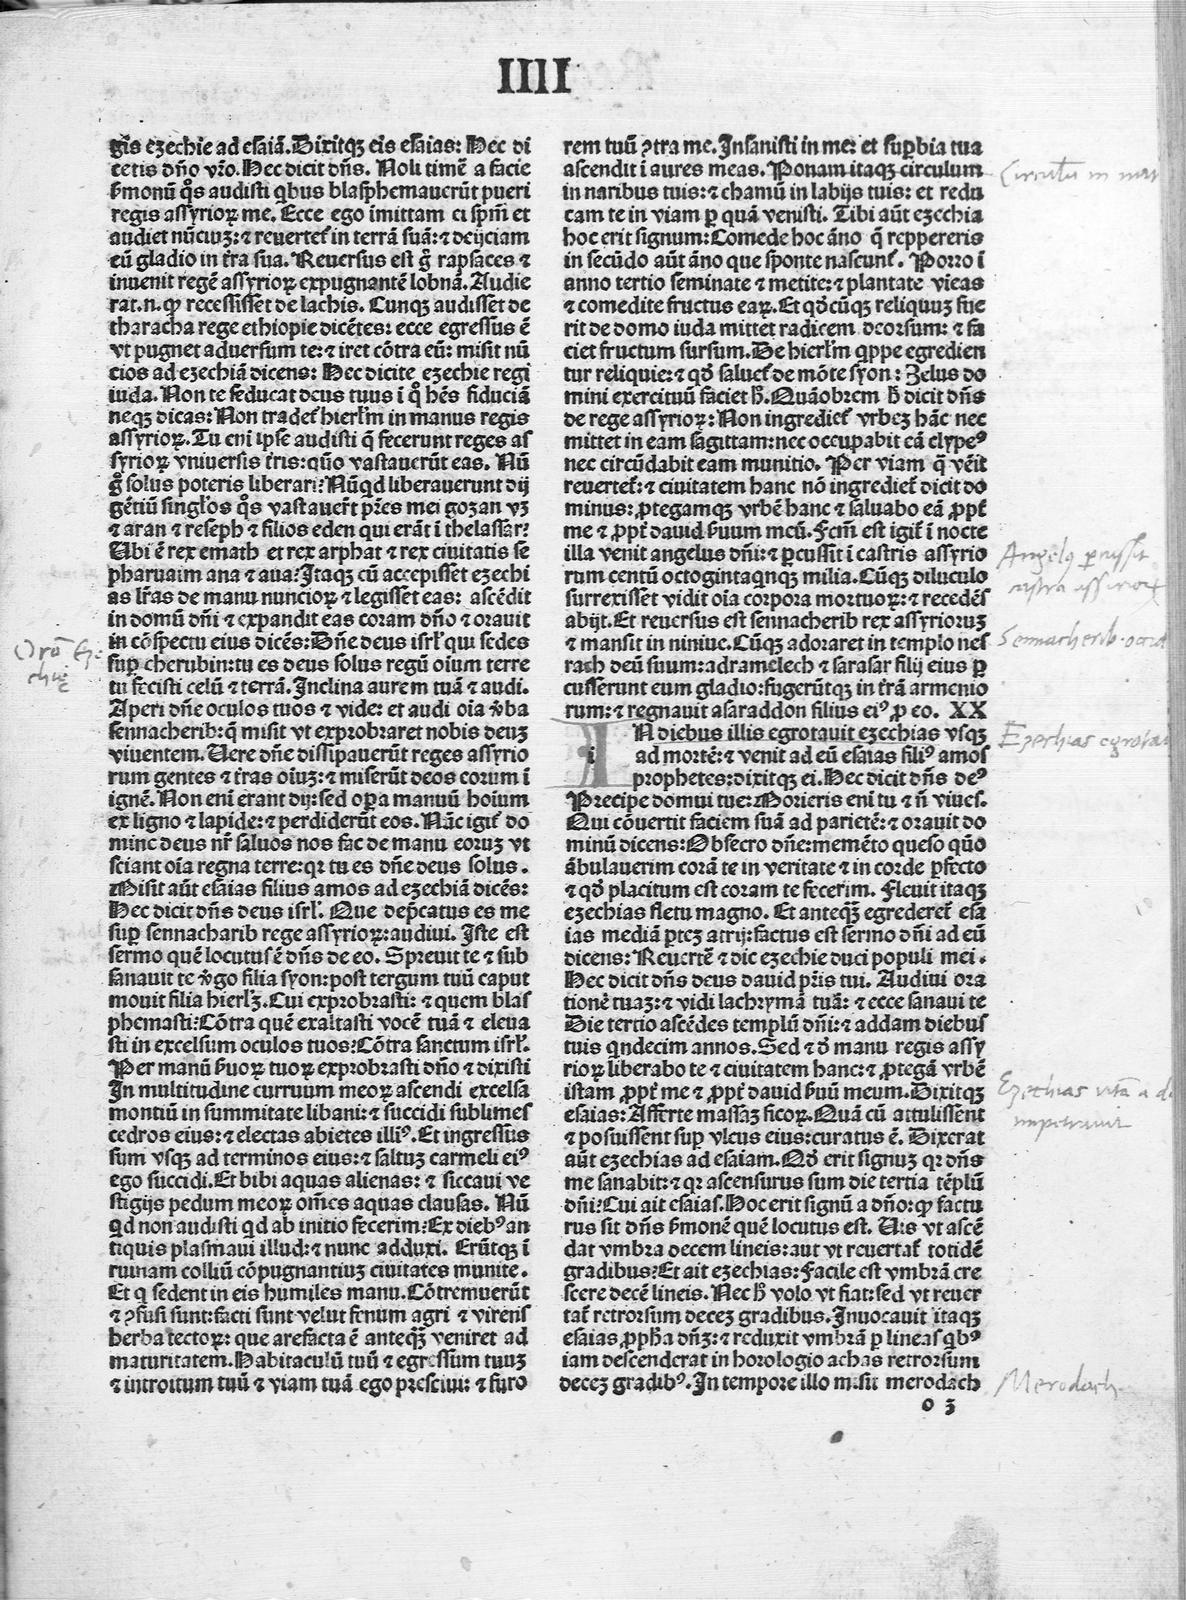 IIII
gis ezechie ad esaiā. Dixitqꝫ eis esaias: Hec di
cetis dño vr̃o. Hec dicit dñs. Noli timẽ a facie
ẜmonū q̊s audisti qbus blasphemauerūt pueri
regis assyrioꝝ me. Ecce ego imittam ei sp̃m et
audiet nūciuꝫ: ⁊ reuertet᷑ in terrā suā: ⁊ deijciam
eū gladio in t̃ra sua. Reuersus est g̊ rapsaces ⁊
inuenit regē assyrioꝝ expugnantē lobnā. Audie
rat.n. ꝙ recessisset de lachis. Cunqꝫ audisset de
tharacha rege ethiopie dicētes: ecce egressus ē
vt pugnet aduersum te: ⁊ iret cōtra eū: misit nū
cios ad ezechiā dicens: Hec dicite ezechie regi
iuda. Non te seducat deus tuus i q̊ hẽs fiduciā
neqꝫ dicas: Non tradet᷑ hierl̃m in manus regis
assyrioꝝ. Tu eni ipse audisti q̃ fecerunt reges as
syrioꝝ vniuersis t̃ris: quō vastauerūt eas. Nū
g̊ solus poteris liberari? Nūqd liberauerunt dij
gētiū singl̃os q̊s vastauer̃t pr̃es mei gozan vꝫ
⁊ aran ⁊ reseph ⁊ filios eden qui erāt i thelassar?
Ubi ē rex emath et rex arphat ⁊ rex ciuitatis se
pharuaim ana ⁊ aua? Itaqꝫ cū accepisset ezechi
as lr̃as de manu nuncioꝝ ⁊ legisset eas: ascēdit
in domū dñi ⁊ expandit eas coram dño ⁊ orauit
in cōspectu eius dicēs: Dñe deus isrl̃ qui sedes
suꝑ cherubin: tu es deus solus regū oīum terre
tu fecisti celū ⁊ terrā. Inclina aurem tuā ⁊ audi.
Aperi dñe oculos tuos ⁊ vide: et audi oīa v̾ba
sennacherib: q̃ misit vt exprobraret nobis deuꝫ
viuentem. Uere dñe dissipauerūt reges assyrio
rum gentes ⁊ t̃ras oīuꝫ: ⁊ miserūt deos eorum i
ignē. Non eni erant dij: sed oꝑa manuū hoīum
ex ligno ⁊ lapide: ⁊ perdiderūt eos. Nūc igit᷑ do
mine deus nr̃ saluos nos fac de manu eoruꝫ vt
sciant oīa regna terre: qꝛ tu es dñe deus solus.
Misit aūt esaias filius amos ad ezechiā dicēs:
Hec dicit dñs deus isrl̃. Que dep̃catus es me
suꝑ sennacharib rege assyrioꝝ: audiui. Iste est
sermo quē locutus ē dñs de eo. Spreuit te ⁊ sub
sanauit te v̾go filia syon: post tergum tuū caput
mouit filia hierlꝫ. Cui exprobrasti: ⁊ quem blas
phemasti? Cōtra quē exaltasti vocē tuā ⁊ eleua
sti in excelsum oculos tuos? Cōtra sanctum isrl̃.
Per manū ẜuoꝝ tuoꝝ exprobrasti dño ⁊ dixisti
In multitudine curruum meoꝝ ascendi excelsa
montiū in summitate libani: ⁊ succidi sublimes
cedros eius: ⁊ electas abietes illiꝰ. Et ingressus
sum vsqꝫ ad terminos eius: ⁊ saltuꝫ carmeli eiꝰ
ego succidi. Et bibi aquas alienas: ⁊ siccaui ve
stigijs pedum meoꝝ om̃es aquas clausas. Nū
qd non audisti qd ab initio fecerim? Ex diebꝰ an
tiquis plasmaui illud: ⁊ nunc adduxi. Erūtqꝫ i
ruinam colliū cōpugnantiuꝫ ciuitates munite.
Et q sedent in eis humiles manu. Cōtremuerūt
⁊ ꝯfusi sunt: facti sunt velut fenum agri ⁊ virens
herba tectoꝝ: que arefacta ē anteqꝫ̃ veniret ad
maturitatem. Habitaculū tuū ⁊ egressum tuuꝫ
⁊ introitum tuū ⁊ viam tuā ego presciui: ⁊ furo
rem tuū ꝯtra me. Insanisti in me: et suꝑbia tua
ascendit i aures meas. Ponam itaqꝫ circulum
in naribus tuis: ⁊ chamū in labijs tuis: et redu
cam te in viam ꝑ quā venisti. Tibi aūt ezechia
hoc erit signum: Comede hoc āno q̃ reppereris
in secūdo aūt āno que sponte nascunt᷑. Porro i
anno tertio seminate ⁊ metite: ⁊ plantate vieas
⁊ comedite fructus eaꝝ. Et qd̾cūqꝫ reliquuꝫ fue
rit de domo iuda mittet radicem deorsum: ⁊ fa
ciet fructum sursum. De hierl̃m qppe egredien
tur reliquie: ⁊ qd̾ saluet᷑ de mōte syon: Zelus do
mini exercituū faciet h̾. Quāobrem h̾ dicit dñs
de rege assyrioꝝ: Non ingrediet᷑ vrbeꝫ hāc nec
mittet in eam sagittam: nec occupabit eā clypeꝰ
nec circūdabit eam munitio. Per viam q̃ vēit
reuertet᷑: ⁊ ciuitatem hanc nō ingrediet᷑ dicit do
minus: ꝓtegamqꝫ vrbē hanc ⁊ saluabo eā ꝓpt̃
me ⁊ ꝓpt̃ dauid ẜuum meū. Fcm̃ est igit᷑ i nocte
illa venit angelus dñi: ⁊ ꝑcussit i castris assyrio
rum centū octogintaqnqꝫ milia. Cūqꝫ diluculo
surrexisset vidit oīa corpora mortuoꝝ: ⁊ recedēs
abijt. Et reuersus est sennacherib rex assyrioruꝫ
⁊ mansit in niniue. Cūqꝫ adoraret in templo nes
rach deū suum: adramelech ⁊ sarasar filij eius ꝑ
cusserunt eum gladio: fugerūtqꝫ in t̃rā armenio
rum: ⁊ regnauit asaraddon filius eiꝰ ꝓ eo. XX
IN diebus illis egrotauit ezechias vsqꝫ
i ad mortē: ⁊ venit ad eū esaias filiꝰ amos
prophetes: dixitqꝫ ei. Hec dicit dñs deꝰ
Precipe domui tue: Morieris eni tu ⁊ ñ viues.
Qui cōuertit faciem suā ad parietē: ⁊ orauit do
minū dicens: Obsecro dñe: memēto queso quō
ābulauerim corā te in veritate ⁊ in corde ꝑfecto
⁊ qd̾ placitum est coram te fecerim. Fleuit itaqꝫ
ezechias fletu magno. Et anteqꝫ̃ egrederet᷑ esa
ias mediā ꝑteꝫ atrij: factus est sermo dñi ad eū
dicens: Reuertẽ ⁊ dic ezechie duci populi mei.
Hec dicit dñs deus dauid pr̃is tui. Audiui ora
tionē tuaꝫ: ⁊ vidi lachrymā tuā: ⁊ ecce sanaui te
Die tercio ascēdes templū dñi: ⁊ addam diebus
tuis qndecim annos. Sed ⁊ d̾ manu regis assy
rioꝝ liberabo te ⁊ ciuitatem hanc: ⁊ ꝓtegā vrbē
istam ꝓpt̃ me ⁊ ꝓpt̃ dauid ẜuū meum. Dixitqꝫ
esaias: Afferte massaꝫ ficoꝝ. Quā cū attulissent
⁊ posuissent suꝑ vlcus eius: curatus ē. Dixerat
aūt ezechias ad esaiam. Qd̾ erit signuꝫ qꝛ dñs
me sanabit: ⁊ qꝛ ascensurus sum die tertia tēplū
dñi? Cui ait esaias. Hoc erit signū a dño: ꝙ factu
rus sit dñs ẜmonē quē locutus est. Uis vt ascē
dat vmbra decem lineis: aut vt reuertat᷑ totidē
gradibus? Et ait ezechias: Facile est vmbrā cre
scere decē lineis. Nec h̾ volo vt fiat: sed vt reuer
tat᷑ retrorsum deceꝫ gradibus. Inuocauit itaqꝫ
esaias ꝓph̃a dñꝫ: ⁊ reduxit vmbrā ꝑ lineas qbꝰ
iam descenderat in horologio achas retrorsum
deceꝫ gradibꝰ. In tempore illo misit merodach
o 3
Orō Eze
chię
Circulū in nar
Angelꝰ ꝑcussit
castra assirioꝝ
Sennacherib
Ezechias egrotat
Ezechias vitā a
impetrauit
Merodach.